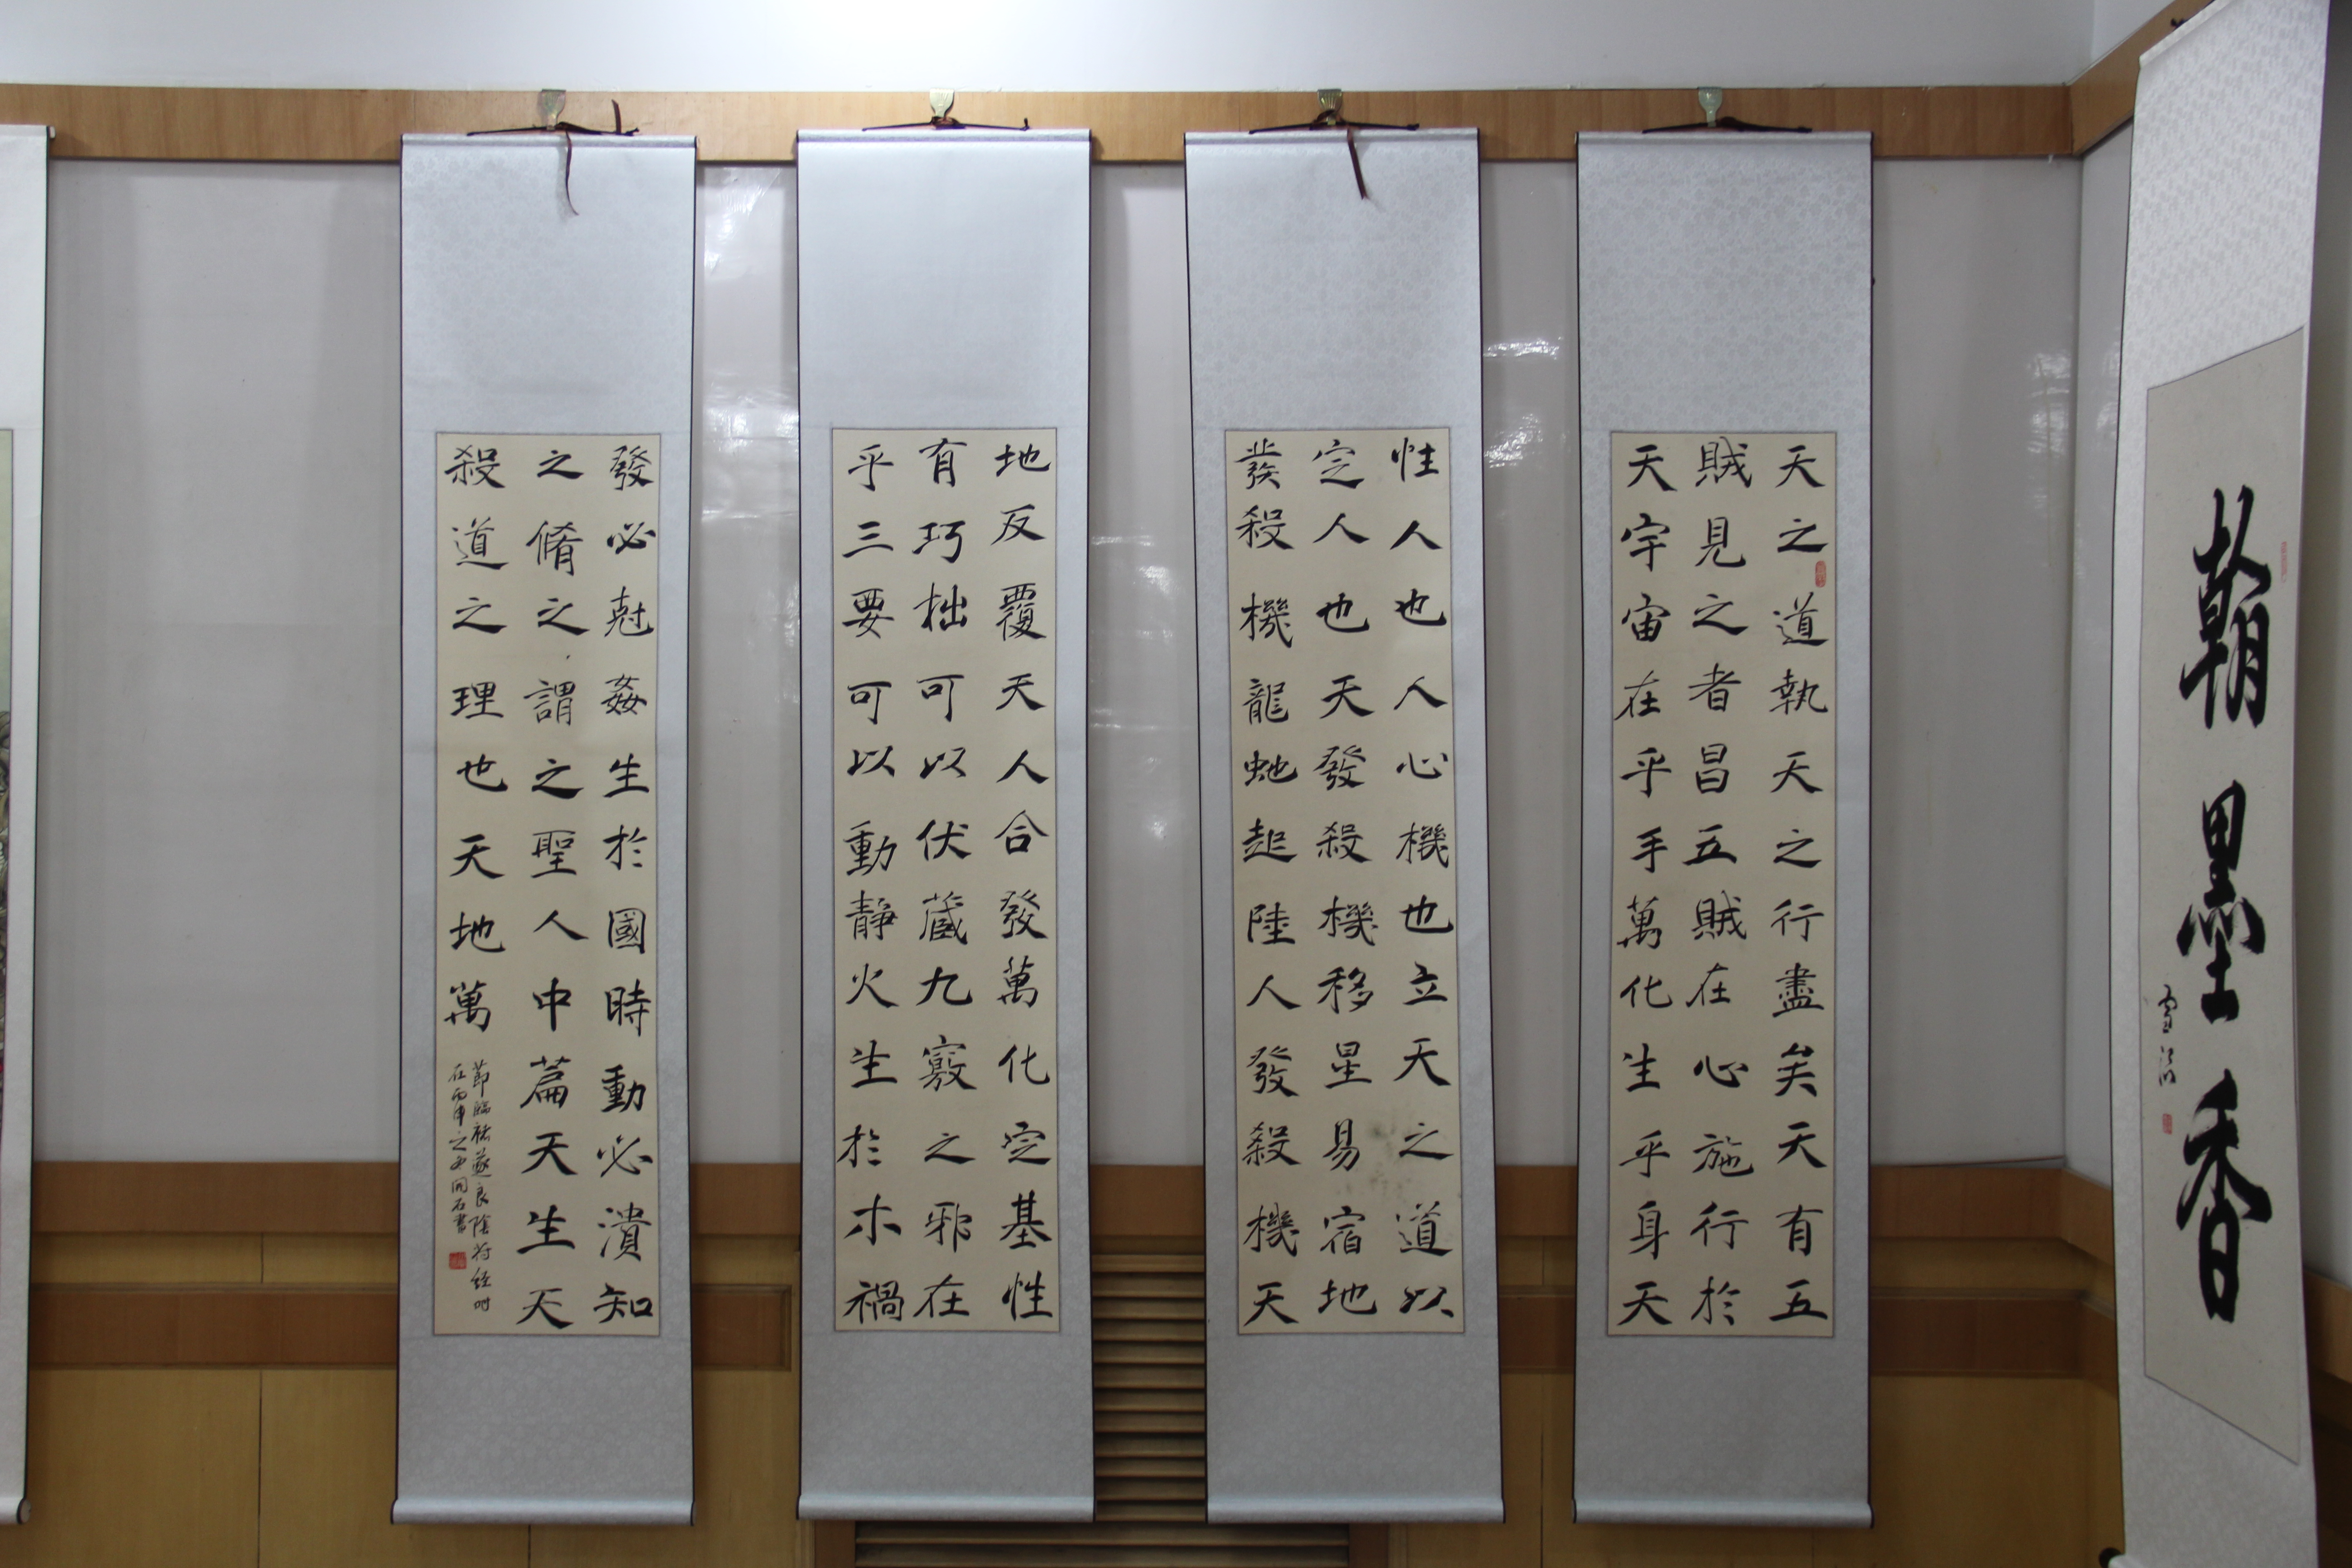 翰墨香
天之道執天之行盡矣天有五
賊見之者昌五賊在心施行於
天宇宙在乎手萬化生乎身天
性人也人心機也立天之道以
定人也天發殺機移星易宿地
發殺機龍虵起陸人發殺機天
地反覆天人合發萬化定基性
有巧拙可以伏藏九竅之邪在
乎三要可以動靜火生於木禍
發必尅姦生於國時動必潰知
之脩之謂之聖人中篇天生天
殺道之理也天地萬
節臨褚遂良陰符經時
在丙申之